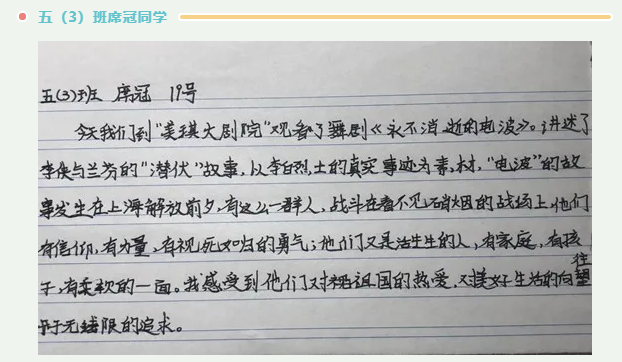 五（3）班席冠同学
五(3)班 席冠 19号
今天我们到“美琪大剧院”观看了舞剧《永不消逝的电波》。讲述了
李侠与兰芬的“潜伏”故事,以李白烈士的真实事迹为素材,“电波”的故
事发生在上海解放前夕,有这么一群人,战斗在看不见硝烟的战场上,他们
有信仰,有力量,有视死如归的勇气;他们又是活生生的人,有家庭,有孩
子,有柔软的一面。我感受到他们对祖国的热爱,对美好生活的向往
望
无限的追求。